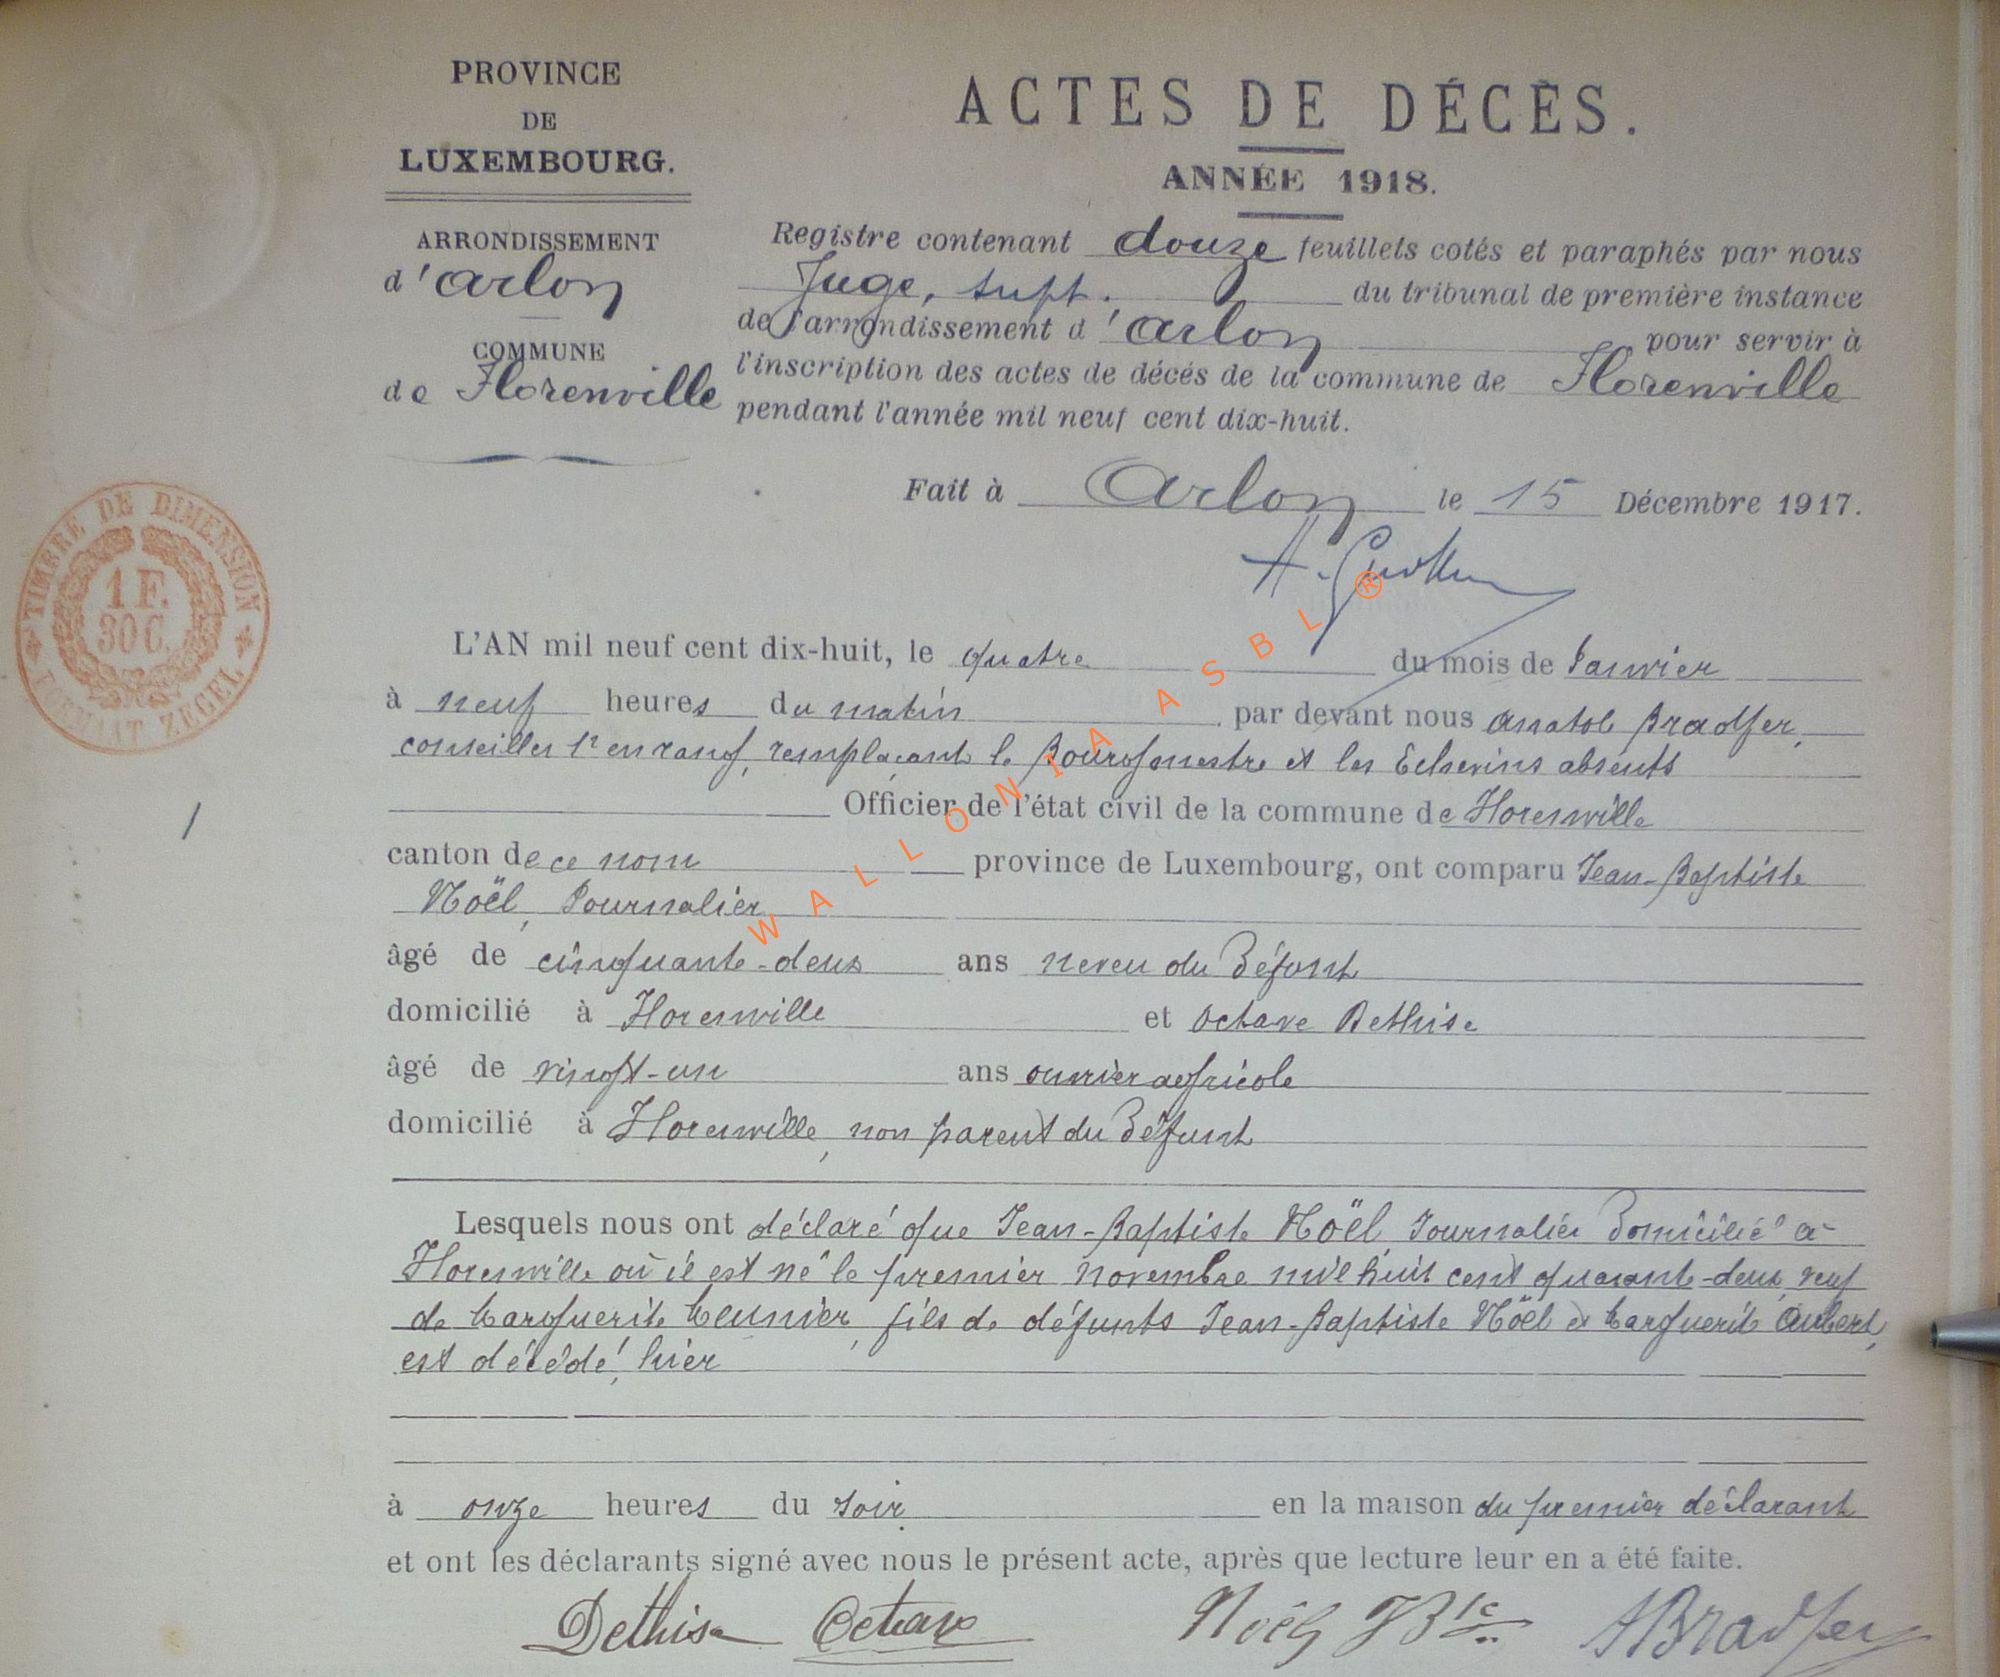 PROVINCE
DE
LUXEMBOURG.
ARRONDISSEMENT
d'Arlon
COMMUNE
de Florenville
ACTES DE DÉCÈS.
ANNÉE 1918.
Registre contenant douze feuillets cotés et paraphés par nous
Juge, supt. du tribunal de première instance
de l'arrondissement d'Arlon pour servir à
l'inscription des actes de décés de la commune de Florenville
pendant l'année mil neuf cent dix-huit.
Fait à Arlon le 15 Décembre 1917.
TIMBRE DE DIMENSION
1 F.
30 C.
FORMAAT ZEGEL
L'AN mil neuf cent dix-huit, le quatre du mois de Janvier
à neuf heures du matin par devant nous Anatole Bradfer,
conseiller 1r en rang, remplaçant le Bourgmestre et les Echevins absents
Officier de l'état civil de la commune de Florenville
1
canton de ce nom province de Luxembourg, ont comparu Jean-Baptiste
Noël, Journalier
âgé de cinquante-deux ans neveu du Défunt
domicilié à Florenville et Octave Dethise
âgé de vingt-un ans ouvrier agricole
domicilié à Florenville, non parent du Défunt
Lesquels nous ont déclaré que Jean-Baptiste Noël, Journalier Domicilié à
Florenville où il est né le premier novembre mil huit cent quarante-deux, veuf
de Marguerite Meunier, fils de défunts Jean-Baptiste Noël et Marguerite Aubert,
est décédé, hier
à onze heures du soir en la maison du premier déclarant
et ont les déclarants signé avec nous le présent acte, après que lecture leur en a été faite.
Dethise Octave Noël J Bte ABradfer
WALLONIA ASBL ®